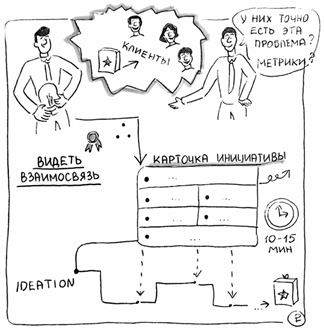 КЛИЕНТЫ
У НИХ ТОЧНО
ЕСТЬ ЭТА
ПРОБЛЕМА?
МЕТРИКИ?
ВИДЕТЬ
ВЗАИМОСВЯЗЬ
КАРТОЧКА ИНИЦИАТИВЫ
...
... ...
... ...
...
10-15
МИН
IDEATION
...